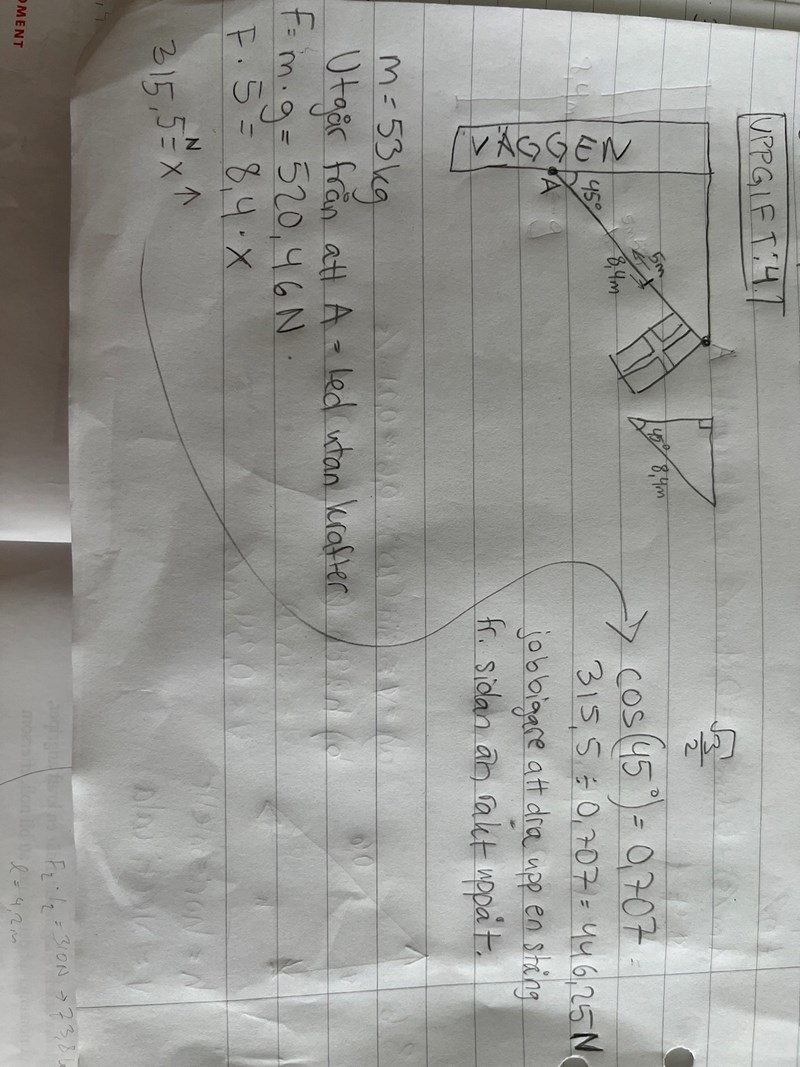 UPPGIFT: 4.1
VÄGGEN
A
45°
5m
8,4m
45°
8,4m
m = 53 kg
Utgår från att A = led utan krafter
F = m · g = 520,46 N.
F · 5 = 8,4 · x
315,5 N = x ↑
√3/2
cos(45°) = 0,707 =
315,5 ÷ 0,707 = 446,25 N
jobbigare att dra upp en stång
fr. sidan än rakt uppåt.
F₂ · l₂ = 310N → 73,8
l = 4,2m